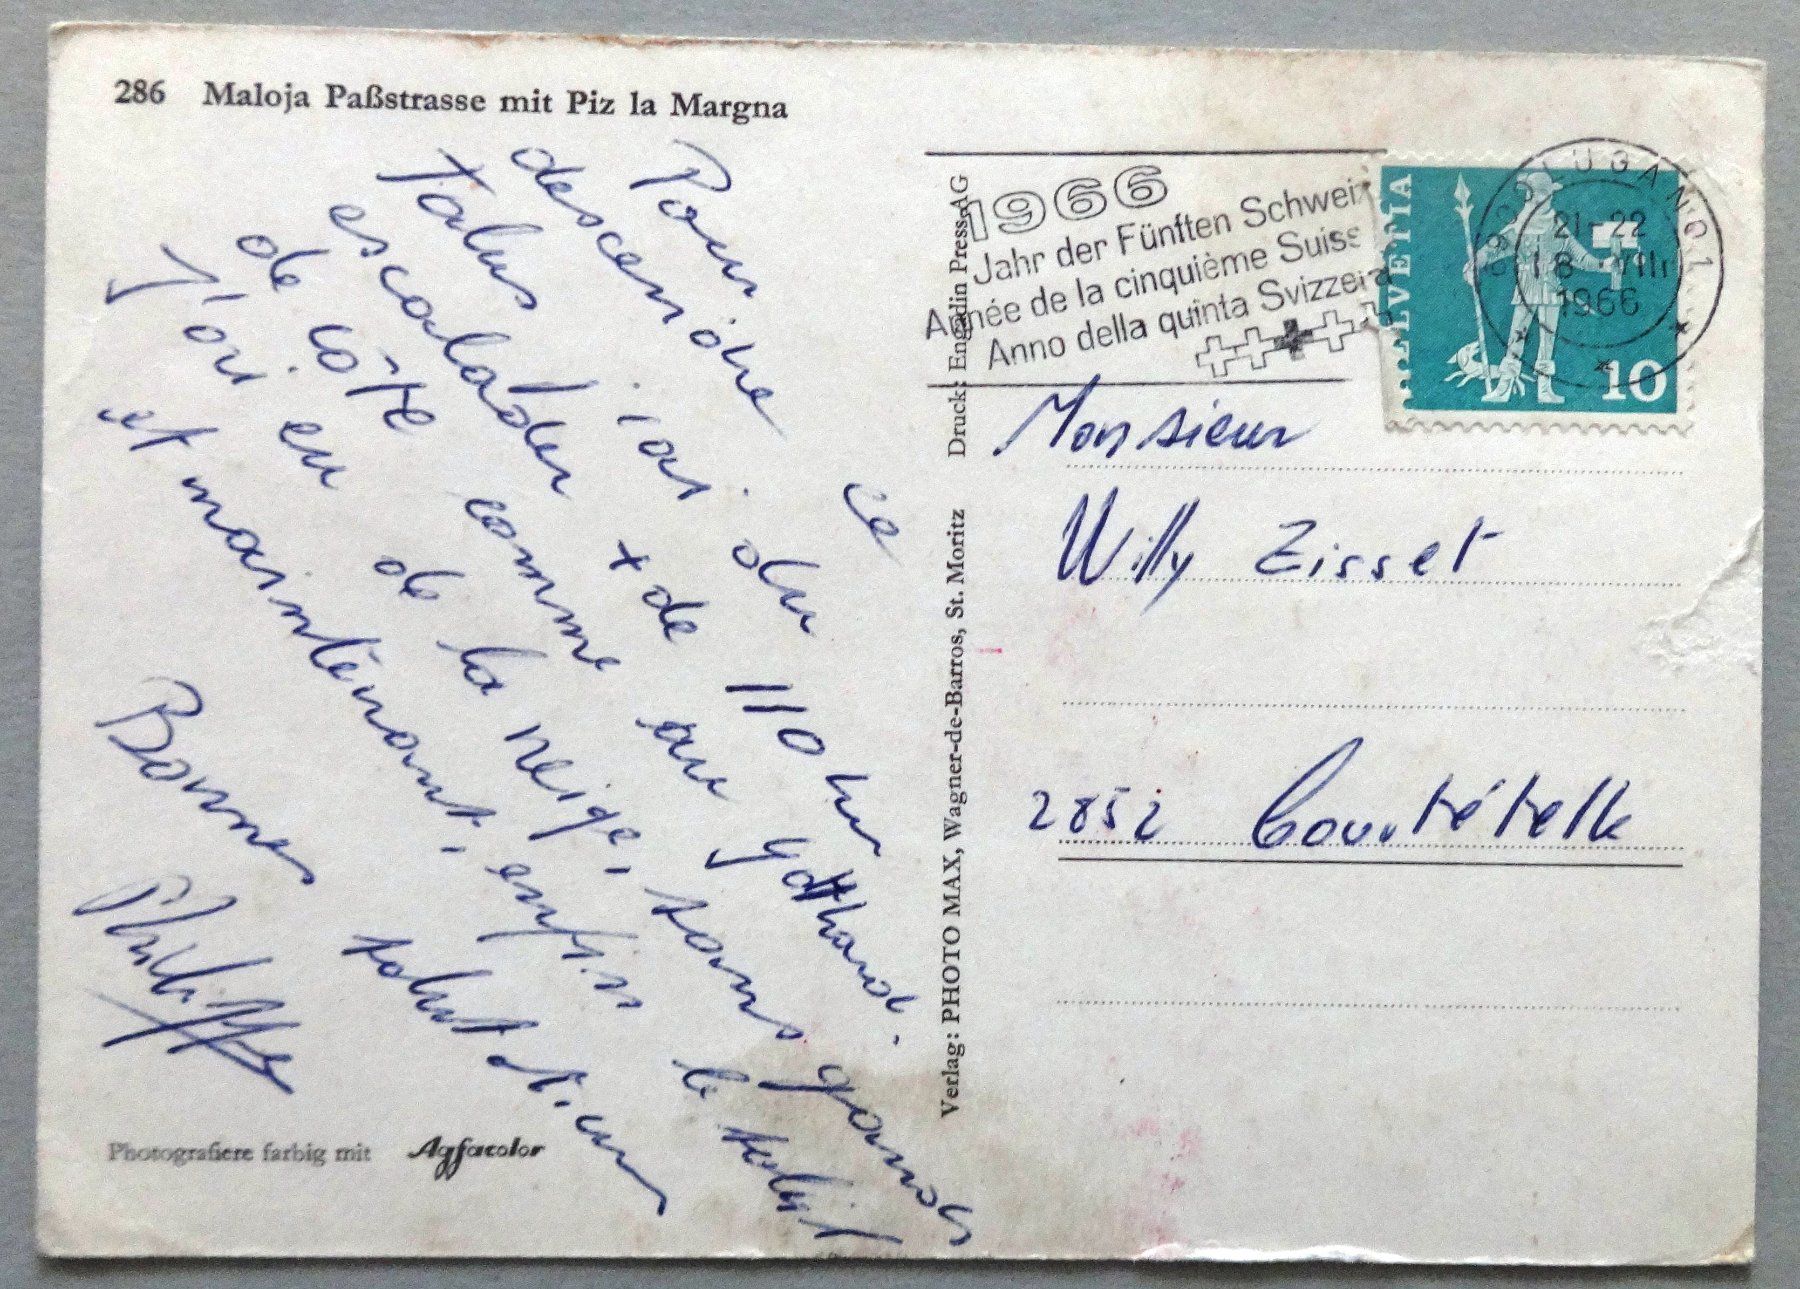 286 Maloja Paßstrasse mit Piz la Margna
Pour
descendre ce
Talus j'ai du
escalader + de 110 km
de côte comme au gotthard.
J'ai eu de la neige, sans gands
et maintenant, enfin le soleil
Bonnes salutations
Philippe
Photografiere farbig mit Agfacolor
Verlag: PHOTO MAX, Wagner-de-Barros, St. Moritz Druck: Engadin Press AG
1966
Jahr der Fünften Schweiz
Année de la cinquième Suisse
Anno della quinta Svizzera
HELVETIA
10
6900 LUGANO 1
21-22
18 VIII
1966
Monsieur
Willy Zisset
2852 Courtételle